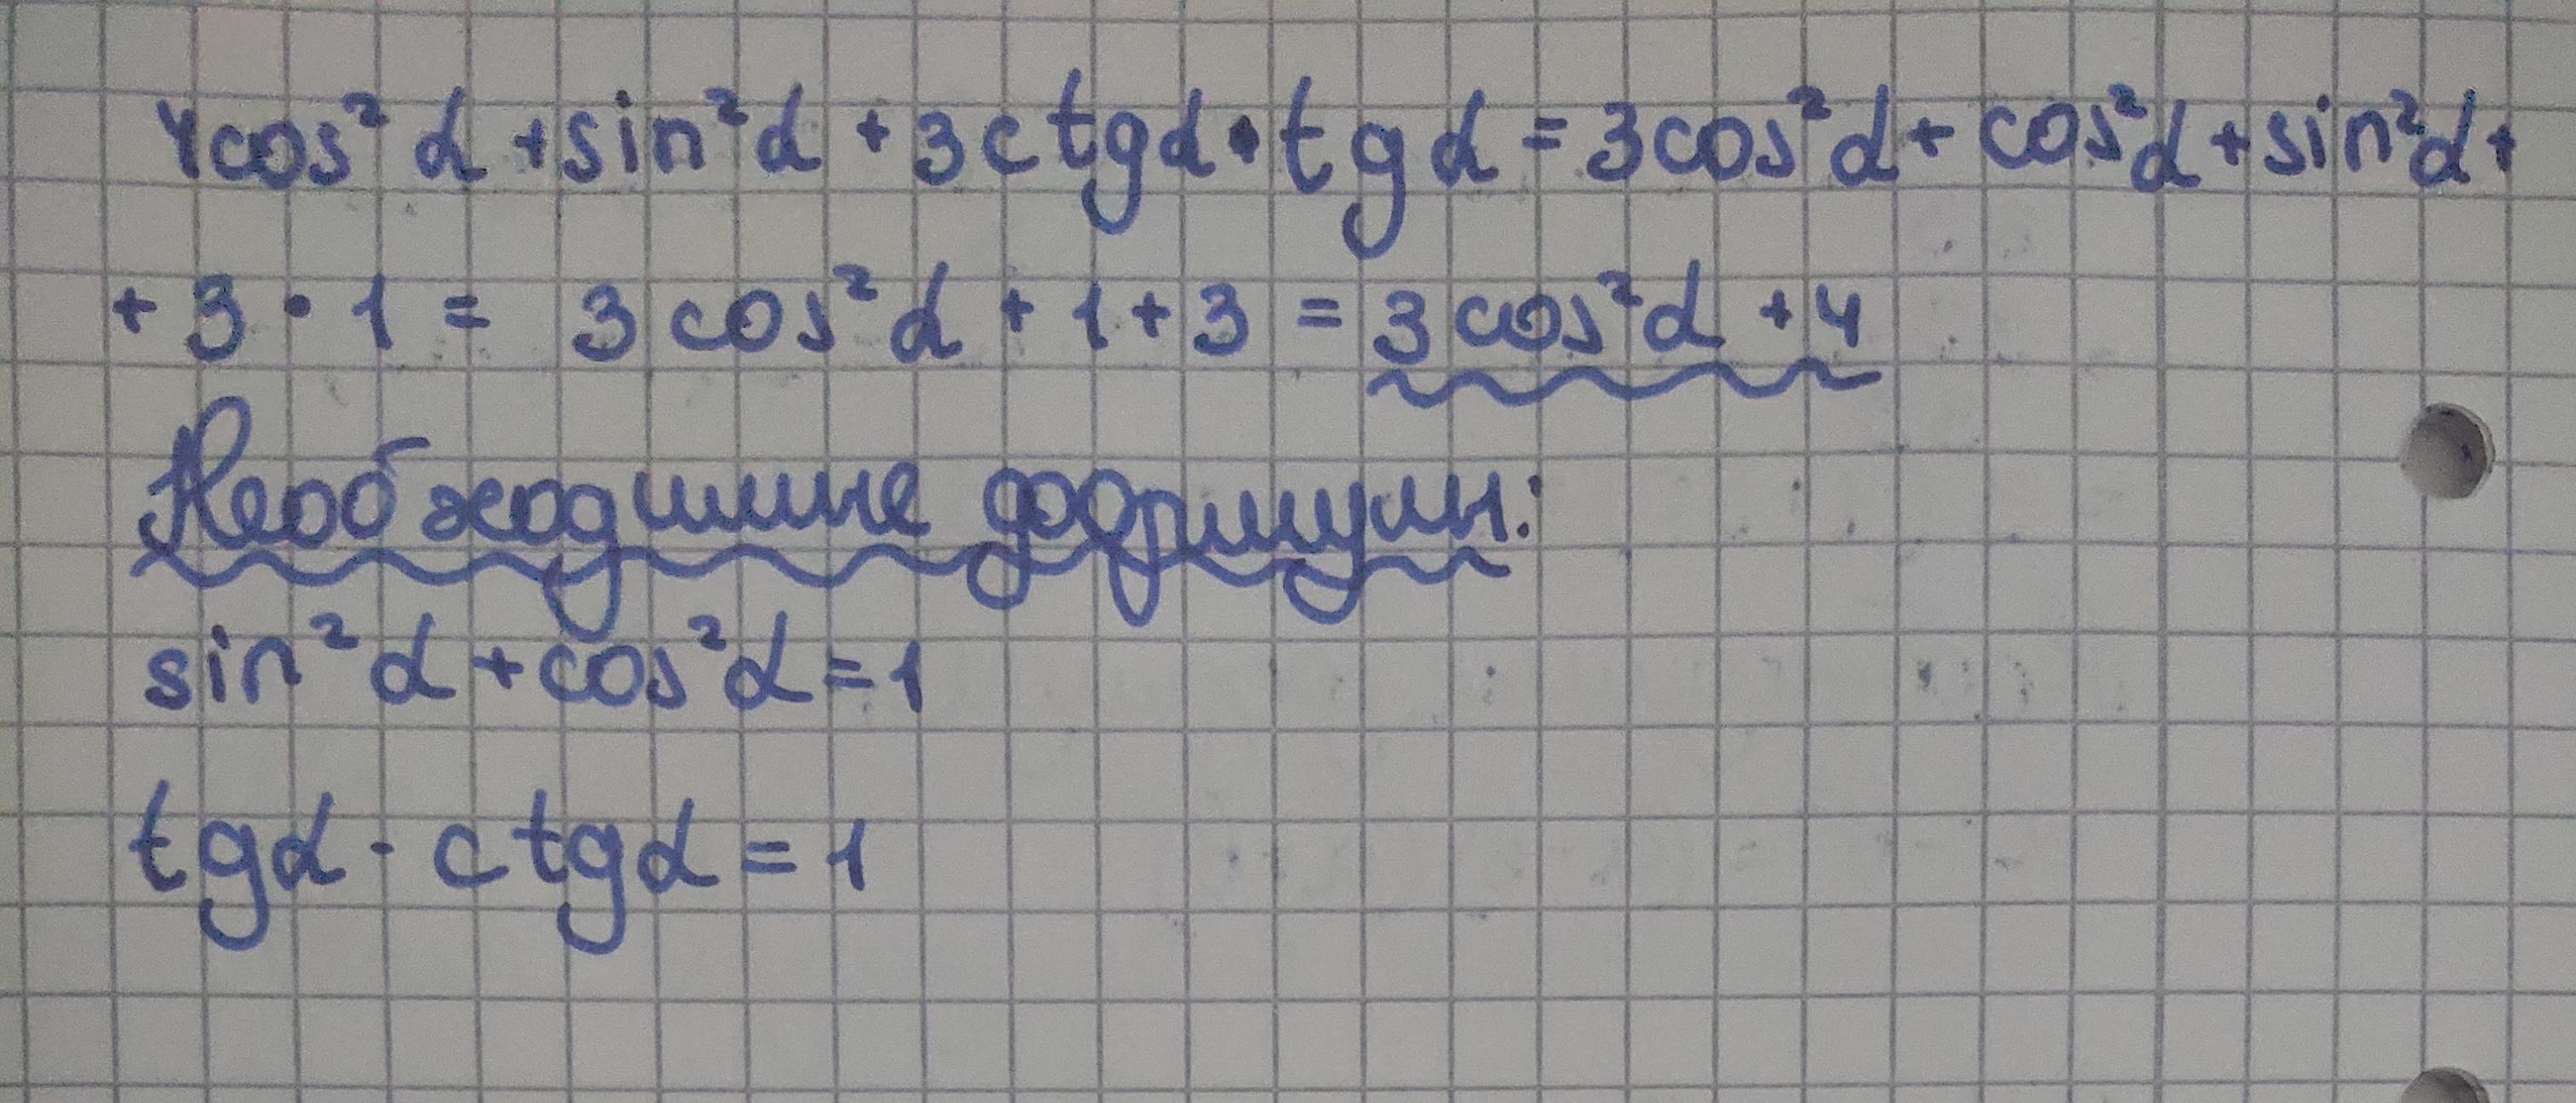 4cos² α + sin² α + 3ctgα · tgα = 3cos² α + cos² α + sin² α +
+ 3 · 1 = 3cos² α + 1 + 3 = 3cos² α + 4
Необходимые формулы:
sin² α + cos² α = 1
tgα · ctgα = 1